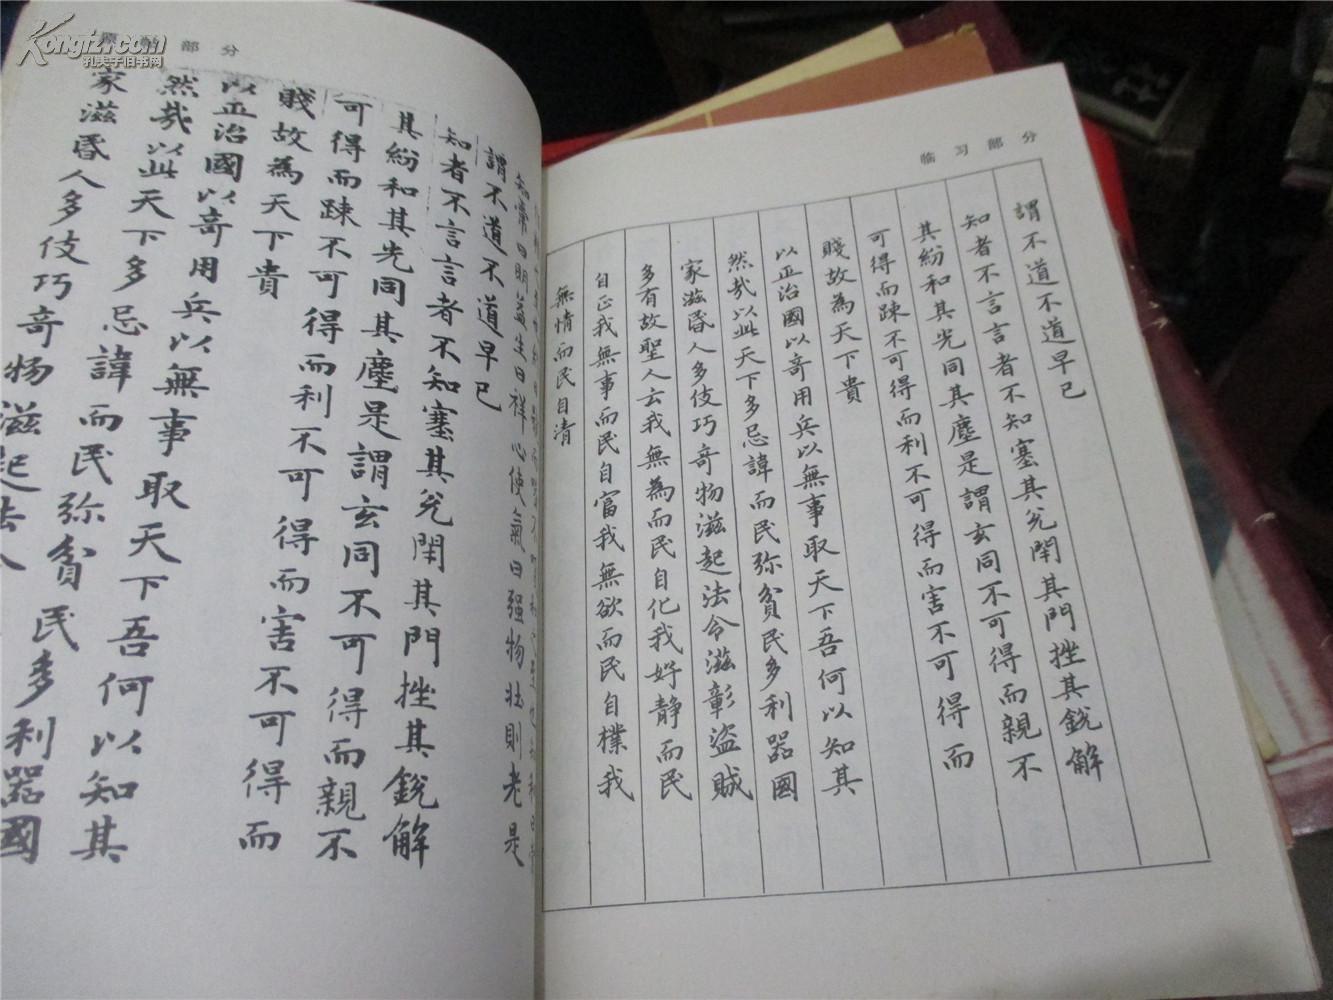 临习部分
謂不道不道早已
知者不言言者不知塞其兊閇其門挫其銳解
其紛和其光同其塵是謂玄同不可得而親不
可得而踈不可得而利不可得而害不可得而
賤故為天下貴
以正治國以奇用兵以無事取天下吾何以知其
然哉以此天下多忌諱而民弥貧民多利器國
家滋昬人多伎巧奇物滋起法令滋彰盜賊
多有故聖人云我無為而民自化我好靜而民
自正我無事而民自富我無欲而民自樸我
無情而民自清
原 部分
知常曰明益生曰祥心使氣曰强物壮則老是
謂不道不道早已
知者不言言者不知塞其兊閇其門挫其銳解
其紛和其光同其塵是謂玄同不可得而親不
可得而踈不可得而利不可得而害不可得而
賤故為天下貴
以正治國以奇用兵以無事取天下吾何以知其
然哉以此天下多忌諱而民弥貧民多利器國
家滋昬人多伎巧奇物滋起法
Kongfz.com
孔夫子旧书网